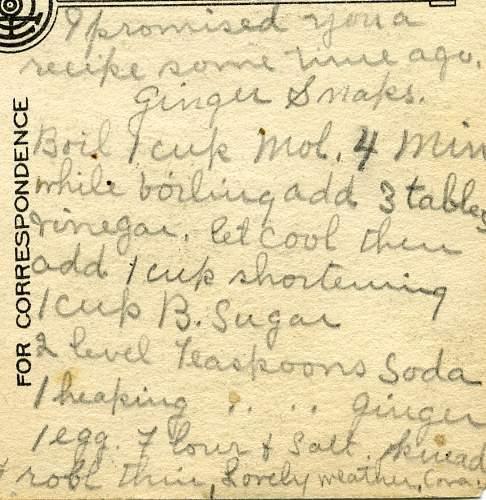 I promised you a
recipe some time ago.
Ginger Snaps.
Boil 1 cup Mol. 4 Min
while boiling add 3 tables
vinegar. let cool then
add 1 cup shortening
1 cup B. Sugar
2 level Teaspoons Soda
1 heaping " " Ginger
1 egg. Flour & Salt. knead
& roll thin, Lovely weather, Cora.
FOR CORRESPONDENCE